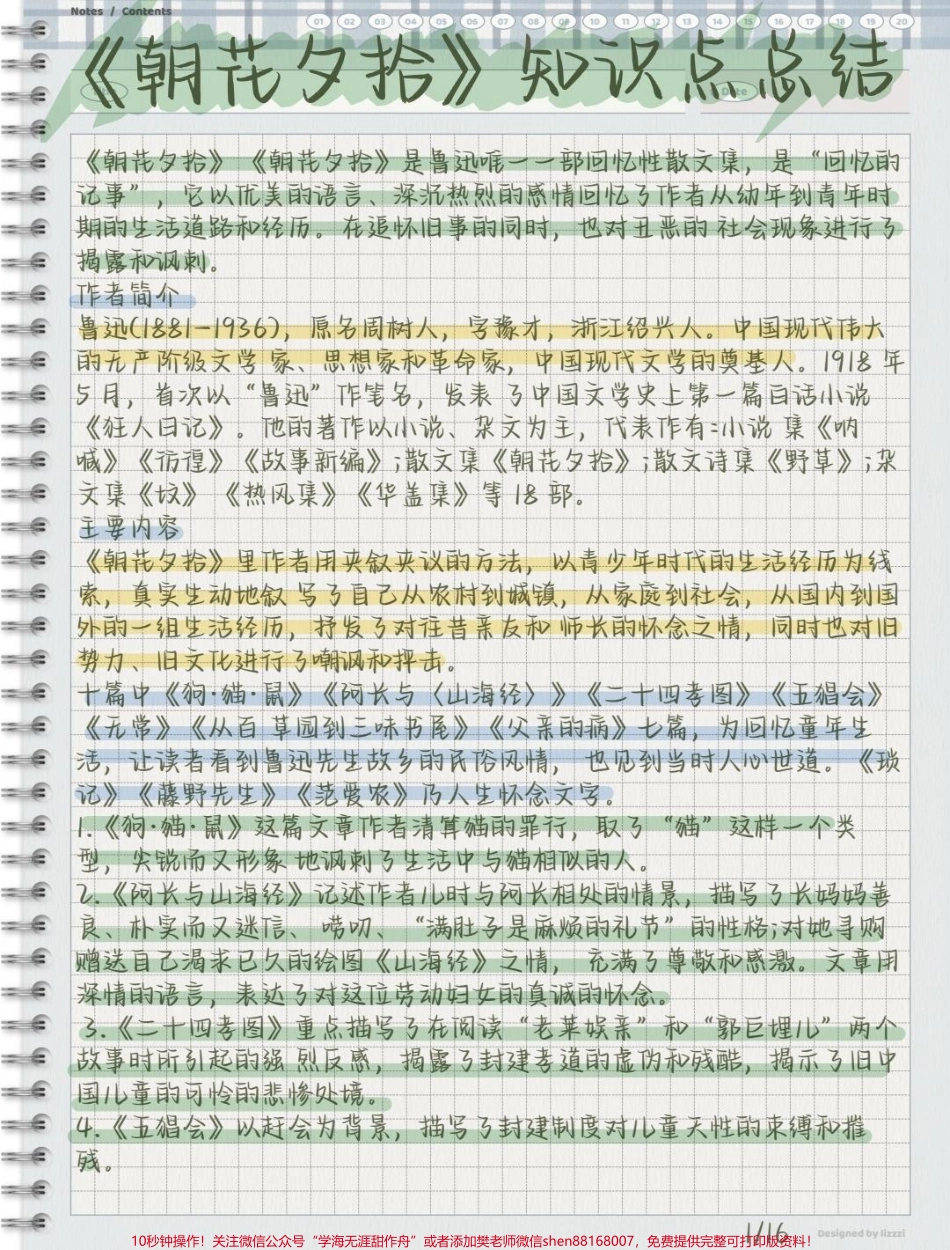 Notes / Contents
01 02 03 04 05 06 07 08 09 10 11 12 13 14 15 16 17 18 19 20
《朝花夕拾》知识点总结
Date
《朝花夕拾》《朝花夕拾》是鲁迅唯一一部回忆性散文集，是“回忆的
记事”，它以优美的语言、深沉热烈的感情回忆了作者从幼年到青年时
期的生活道路和经历。在追怀旧事的同时，也对丑恶的 社会现象进行了
揭露和讽刺。
作者简介
鲁迅(1881-1936)，原名周树人，字豫才，浙江绍兴人。中国现代伟大
的无产阶级文学 家、思想家和革命家，中国现代文学的奠基人。1918 年
5 月，首次以“鲁迅”作笔名，发表 了中国文学史上第一篇白话小说
《狂人日记》。他的著作以小说、杂文为主，代表作有:小说 集《呐
喊》《彷徨》《故事新编》;散文集《朝花夕拾》;散文诗集《野草》;杂
文集《坟》《热风集》《华盖集》等 18 部。
主要内容
《朝花夕拾》里作者用夹叙夹议的方法，以青少年时代的生活经历为线
索，真实生动地叙 写了自己从农村到城镇，从家庭到社会，从国内到国
外的一组生活经历，抒发了对往昔亲友和 师长的怀念之情，同时也对旧
势力、旧文化进行了嘲讽和抨击。
十篇中《狗·猫·鼠》《阿长与〈山海经〉》《二十四孝图》《五猖会》
《无常》《从百 草园到三味书屋》《父亲的病》七篇，为回忆童年生
活，让读者看到鲁迅先生故乡的民俗风情， 也见到当时人心世道。《琐
记》《藤野先生》《范爱农》乃人生怀念文字。
1.《狗·猫·鼠》这篇文章作者清算猫的罪行，取了“猫”这样一个类
型，尖锐而又形象 地讽刺了生活中与猫相似的人。
2.《阿长与山海经》记述作者儿时与阿长相处的情景，描写了长妈妈善
良、朴实而又迷信、 唠叨、“满肚子是麻烦的礼节”的性格;对她寻购
赠送自己渴求已久的绘图《山海经》之情， 充满了尊敬和感激。文章用
深情的语言，表达了对这位劳动妇女的真诚的怀念。
3.《二十四孝图》重点描写了在阅读“老莱娱亲”和“郭巨埋儿”两个
故事时所引起的强 烈反感，揭露了封建孝道的虚伪和残酷，揭示了旧中
国儿童的可怜的悲惨处境。
4.《五猖会》以赶会为背景，描写了封建制度对儿童天性的束缚和摧
残。
1/16
Designed by lizzzi
10秒钟操作！关注微信公众号“学海无涯甜作舟”或者添加樊老师微信shen88168007，免费提供完整可打印版资料！